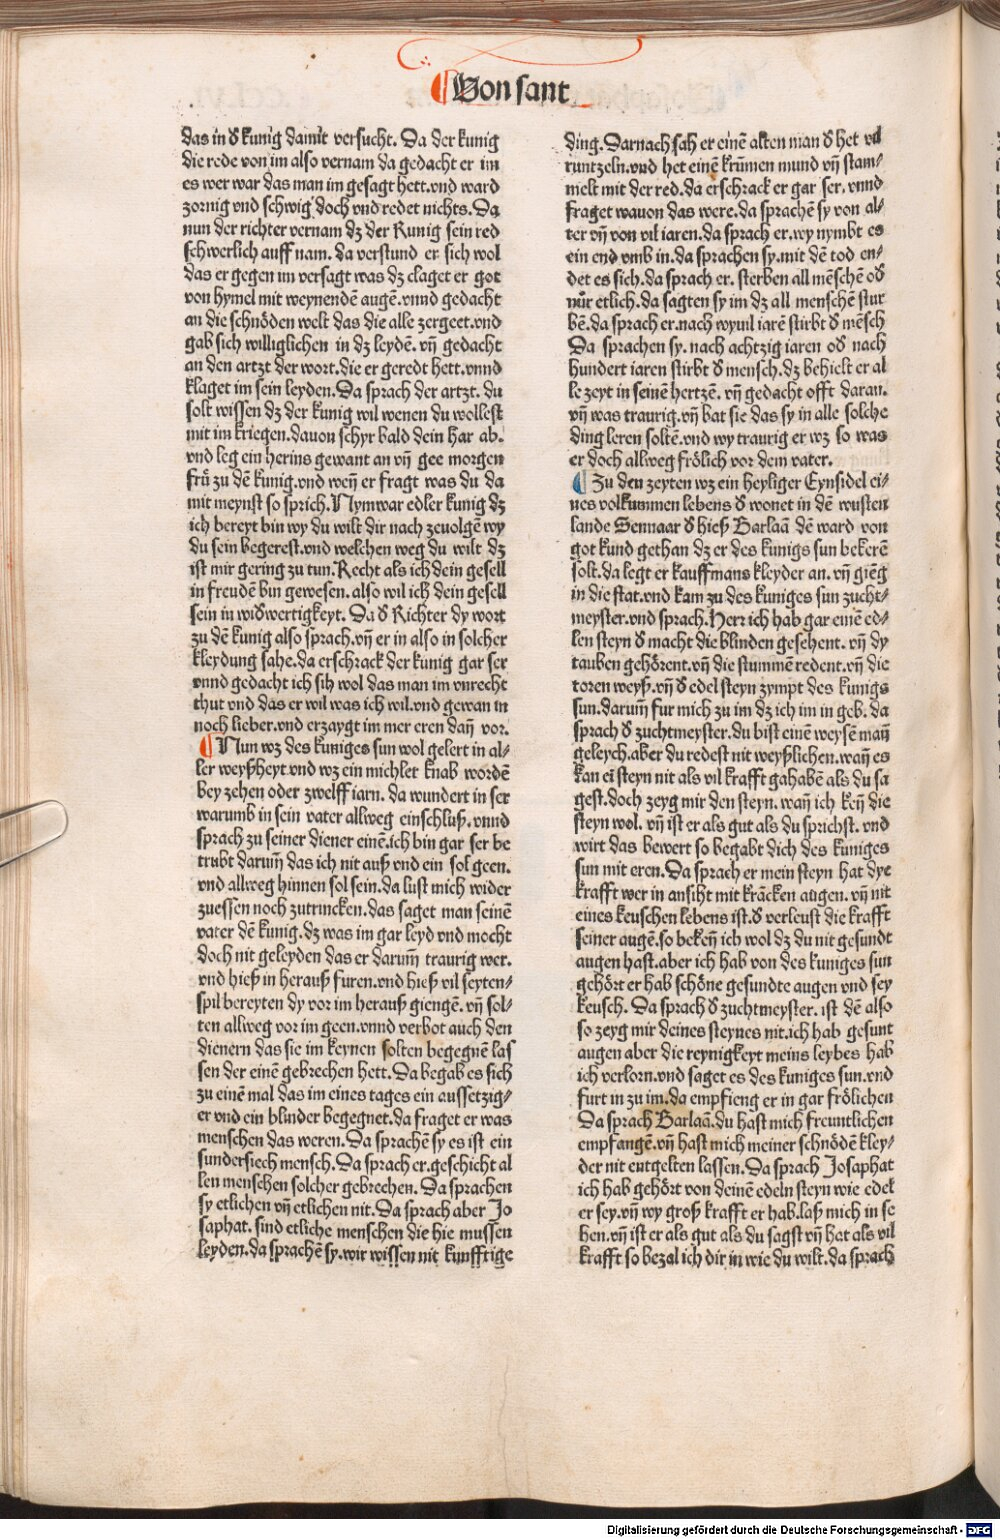 Von sant
das in d̕ kunig damit versucht. Da der kunig
die rede von im also vernam da gedacht er im
es wer war das man im gesagt hett. vnd ward
zornig vnd schwig doch vnd redet nichts. Da
nun der richter vernam dz der Kunig sein red
schwerlich auff nam. da verstund er sich wol
das er gegen im versagt was dz claget er got
von hymel mit weynendē augē. vnnd gedacht
an die schnöden welt das die alle zergeet. vnd
gab sich williglichen in dz leydē. vn̄ gedacht
an den artzt der wort. die er geredt hett. vnnd
klaget im sein leyden. Da sprach der artzt. du
solt wissen dz der kunig wil wenen du wollest
mit im kriegen. dauon schyr bald dein har ab.
vnd leg ein herins gewant an vn̄ gee morgen
frü zu dē kunig. vnd wen̄ er fragt was du da
mit meynst so sprich. Nymwar edler kunig dz
ich bereyt bin wy du wilt dir nach zeuolgē wy
du sein begerest. vnd welchen weg du wilt dz
ist mir gering zu tun. Recht als ich dein gesell
in freudē bin gewesen. also wil ich dein gesell
sein in wid̕wertigkeyt. Da d̕ Richter dy wort
zu dē kunig also sprach. vn̄ er in also in solcher
kleydung sahe. da erschrack der kunig gar ser
vnnd gedacht ich sih wol das man im vnrecht
thut vnd das er wil was ich wil. vnd gewan in
noch lieber. vnd erzaygt im mer eren dan̄ vor.
¶ Nun wz des kuniges sun wol gelert in al⸗
ler weyßheyt vnd wz ein michlet knab wordē
bey zehen oder zwelff iarn. da wundert in ser
warumb in sein vater allweg einschluß. vnnd
sprach zu seiner diener einē. ich bin gar ser be
trubt darum̄ das ich nit auß vnd ein sol geen.
vnd allweg hinnen sol sein. da lust mich wider
zuessen noch zutrincken. das saget man seinē
vater dē kunig. dz was im gar leyd vnd mocht
doch nit geleyden das er darum̄ traurig wer.
vnd hieß in herauß furen. vnd hieß vil seyten⸗
spil bereyten dy vor im herauß giengē. vn̄ sol⸗
ten allweg vor im geen. vnnd verbot auch den
dienern das sie im keynen solten begegnē las
sen der einē gebrechen hett. Da begab es sich
zu einē mal das im eines tages ein aussetzig⸗
er vnd ein blinder begegnet. da fraget er was
menschen das weren. Da sprachē sy es ist ein
sundersiech mensch. Da sprach er. geschicht al
len menschen solcher gebrechen. Da sprachen
sy etlichen vn̄ etlichen nit. Da sprach aber Jo
saphat. sind etliche menschen die hie mussen
leyden. da sprachē sy. wir wissen nit kunfftige
ding. Darnach sah er einē alten man d̕ het vil
runtzeln. vnd het einē krūmen mund vn̄ stam⸗
melt mit der red. da erschrack er gar ser. vnnd
fraget wauon das were. da sprachē sy von al⸗
ter vn̄ von vil iaren. da sprach er. wy nymbt es
ein end vmb in. da sprachen sy. mit dē tod en⸗
det es sich. da sprach er. sterben all mēschē od̕
nur etlich. da sagten sy im dz all menschē stur
bē. da sprach er. nach wyuil iarē stirbt d̕ mēsch
Da sprachen sy. nach achtzig iaren od̕ nach
hundert iaren stirbt d̕ mensch. dz behielt er al
le zeyt in seinē hertzē. vn̄ gedacht offt daran.
vn̄ was traurig. vn̄ bat sie das sy in alle solche
ding leren soltē. vnd wy traurig er wz so was
er doch allweg frölich vor dem vater.
¶ Zu den zeyten wz ein heyliger Eynsidel ei⸗
nes volkummen lebens d̕ wonet in dē wusten
lande Sennaar d̕ hieß Barlaā dē ward von
got kund gethan dz er des kunigs sun bekerē
solt. da legt er kauffmans kleyder an. vn̄ giēg
in die stat. vnd kam zu des kuniges sun zucht⸗
meyster. vnd sprach. Herr ich hab gar einē ed⸗
len steyn d̕ macht die blinden gesehent. vn̄ dy
tauben gehörent. vn̄ die stummē redent. vn̄ die
toren weyß. vn̄ d̕ edel steyn zympt des kunigs
sun. darum̄ fur mich zu im dz ich im in geb. da
sprach d̕ zuchtmeyster. du bist einē weysē man̄
geleych. aber du redest nit weyßlichen. wan̄ es
kan ei steyn nit als vil krafft gahabē als du sa
gest. doch zeyg mir den steyn. wan̄ ich ken̄ die
steyn wol. vn̄ ist er als gut als du sprichst. vnd
wirt das bewert so begabt dich des kuniges
sun mit eren. Da sprach er mein steyn hat dye
krafft wer in ansiht mit krācken augen. vn̄ nit
eines keuschen lebens ist. d̕ verleust die krafft
seiner augē. so beken̄ ich wol dz du nit gesundt
augen hast. aber ich hab von des kuniges sun
gehört er hab schöne gesundte augen vnd sey
keusch. Da sprach d̕ zuchtmeyster. ist dē also
so zeyg mir deines steynes nit. ich hab gesunt
augen aber die reynigkeyt meins leybes hab
ich verlorn. vnd saget es des kuniges sun. vnd
furt in zu im. da empfieng er in gar frölichen
Da sprach Barlaā. du hast mich freuntlichen
empfangē. vn̄ hast mich meiner schnödē kley⸗
der nit entgelten lassen. Da sprach Josaphat
ich hab gehört von deinē edeln steyn wie edel
er sey. vn̄ wy groß krafft er hab. laß mich in se
hen. vn̄ ist er als gut als du sagst vn̄ hat als vil
krafft so bezal ich dir in wie du wilt. da sprach
Digitalisierung gefördert durch die Deutsche Forschungsgemeinschaft - DFG